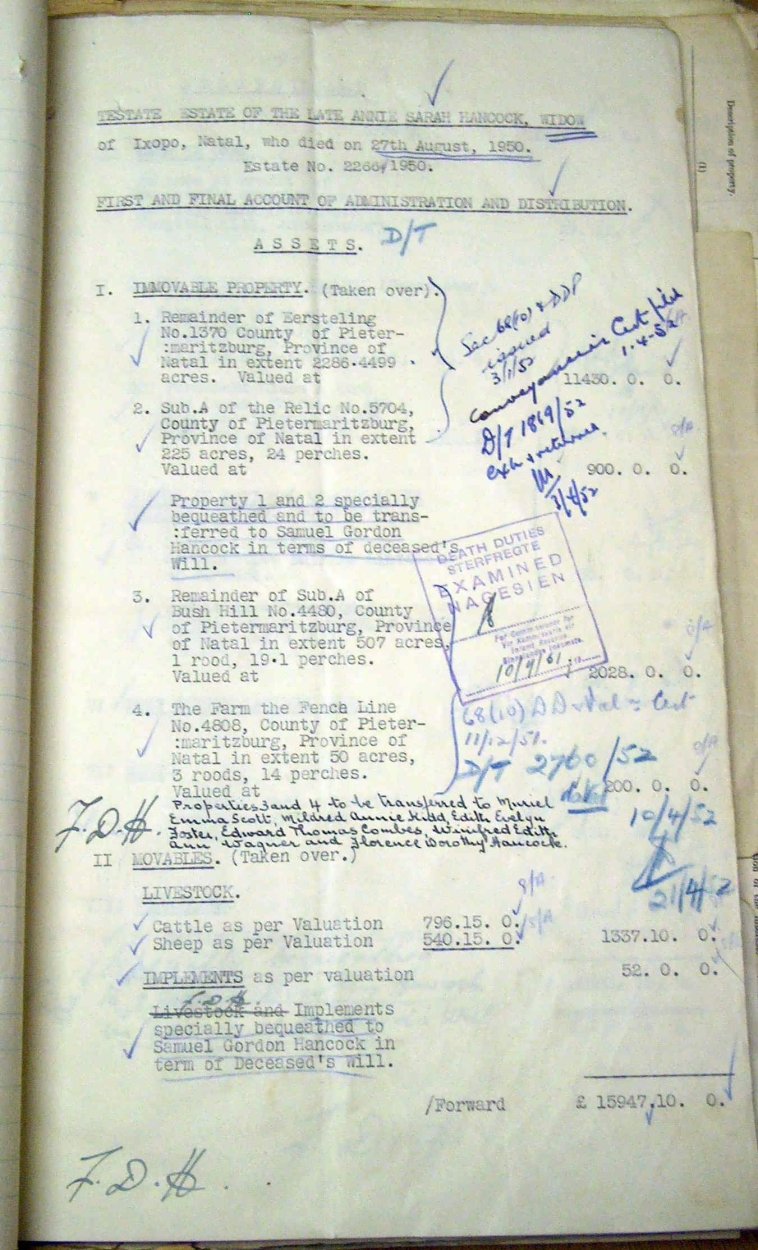 TESTATE ESTATE OF THE LATE ANNIE SARAH HANCOCK, WIDOW
of Ixopo, Natal, who died on 27th August, 1950.
Estate No. 2266/1950.
FIRST AND FINAL ACCOUNT OF ADMINISTRATION AND DISTRIBUTION.
A S S E T S. D/T
I. IMMOVABLE PROPERTY. (Taken over).
1. Remainder of Eersteling
No.1370 County of Pieter-
:maritzburg, Province of
Natal in extent 2286·4499
acres. Valued at 11430. 0. 0.
Sec 68(10) & DDP
issued
3/1/52
Conveyancer's Cert filed
1.4.52
D/T 1869/52
exd & returned
3/4/52
2. Sub.A of the Relic No.5704,
County of Pietermaritzburg,
Province of Natal in extent
225 acres, 24 perches.
Valued at 900. 0. 0.
Property 1 and 2 specially
bequeathed and to be trans-
:ferred to Samuel Gordon
Hancock in terms of deceased's
Will.
DEATH DUTIES
STERFREGTE
EXAMINED
NAGESIEN
For Commissioner for
Inland Revenue
10/9/61
3. Remainder of Sub.A of
Bush Hill No.4480, County
of Pietermaritzburg, Province
of Natal in extent 507 acres,
1 rood, 19·1 perches.
Valued at 2028. 0. 0.
68(10) DD & Val: Cert
11/12/51.
D/T 2760/52
4. The Farm the Fence Line
No.4808, County of Pieter-
:maritzburg, Province of
Natal in extent 50 acres,
3 roods, 14 perches.
Valued at 200. 0. 0.
10/4/52
21/4/52
Properties 3 and 4 to be transferred to Muriel
Emma Scott, Mildred Annie Kidd, Edith Evelyn
Foster, Edward Thomas Combes, Winifred Edith
Ann Wagner and Florence Dorothy Hancock.
F.D.H.
II MOVABLES. (Taken over.)
LIVESTOCK.
Cattle as per Valuation 796.15. 0.
Sheep as per Valuation 540.15. 0. 1337.10. 0.
IMPLEMENTS as per valuation 52. 0. 0.
F.D.H.
Livestock and Implements
specially bequeathed to
Samuel Gordon Hancock in
term of Deceased's Will.
/Forward £ 15947.10. 0.
F.D.H.
Description of property.
(1)